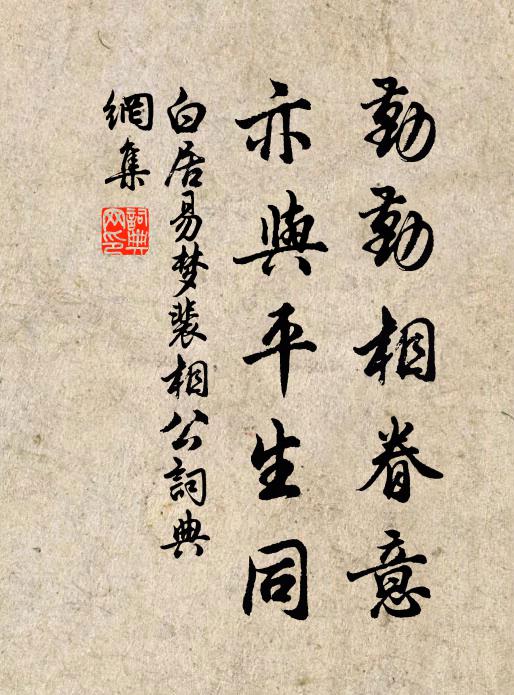 勤勤相眷意
亦與平生同
白居易梦裴相公詞典
網集
詞典
网印